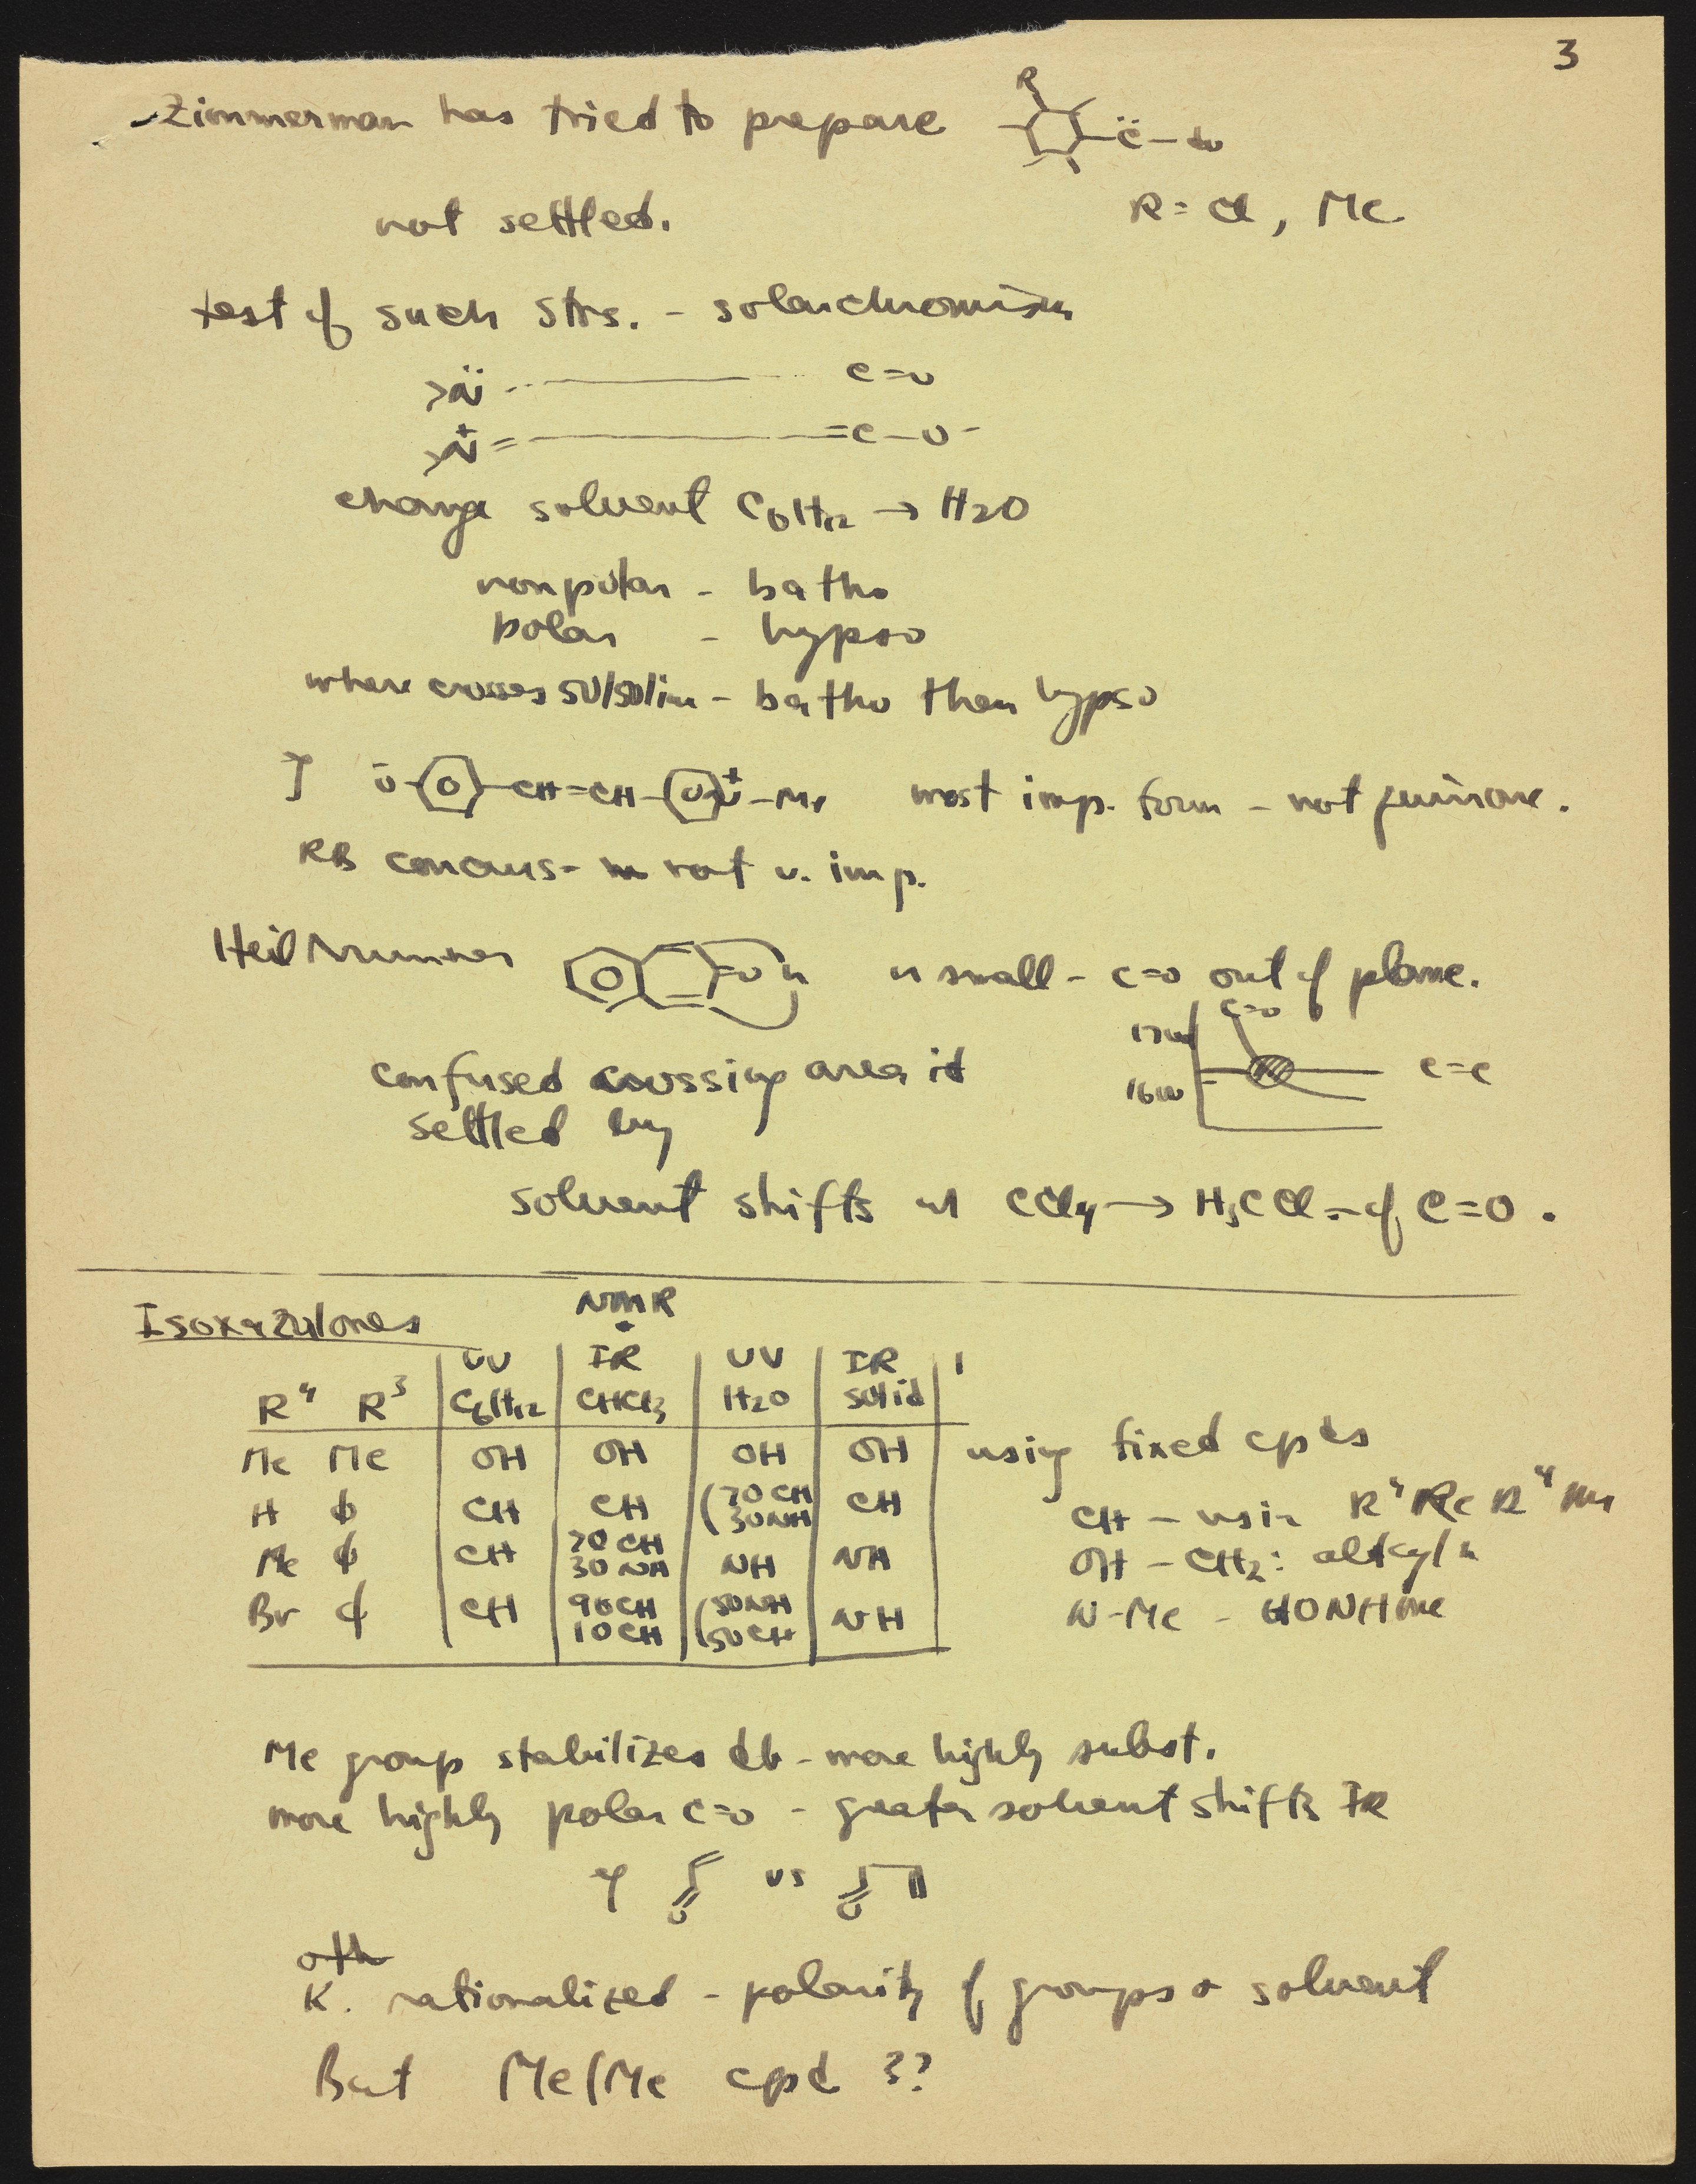 3
Zimmerman has tried to prepare
R
R = Cl, Me
not settled.
test of such strs. - solvachromism
>N̈ ... C=O
>N⁺= =C-O⁻
change solvent C6H12 → H2O
nonpolar - batho
polar - hypso
where crosses 50/50 line - batho then hypso
Ō- -CH=CH- N⁺-Me most imp. form - not quinone.
RB concurs - not v. imp.
Heilbrunner =O n n small - C=O out of plane.
1700 C=O
C=C
1600
confused crossing area is
settled by
solvent shifts in CCl4 → H3CCl - of C=O.
Isoxazolones
NMR
UV IR UV IR
R⁴ R³ C6H12 CHCl3 H2O solid
Me Me OH OH OH OH using fixed cpds
H φ CH CH (70 CH 30 NH CH
Me φ CH 70 CH 30 NH NH NH
Br φ CH 90 CH 10 CH (50 NH 50 CH NH
CH - using R⁴ R⁴ Me
OH - CH2: alkyl n
N-Me - HONHMe
Me group stabilizes db - more highly subst.
more highly polar C=O - greater solvent shifts IR
eg vs
oth
K. rationalized - polarity of groups & solvent
But Me/Me cpd ??